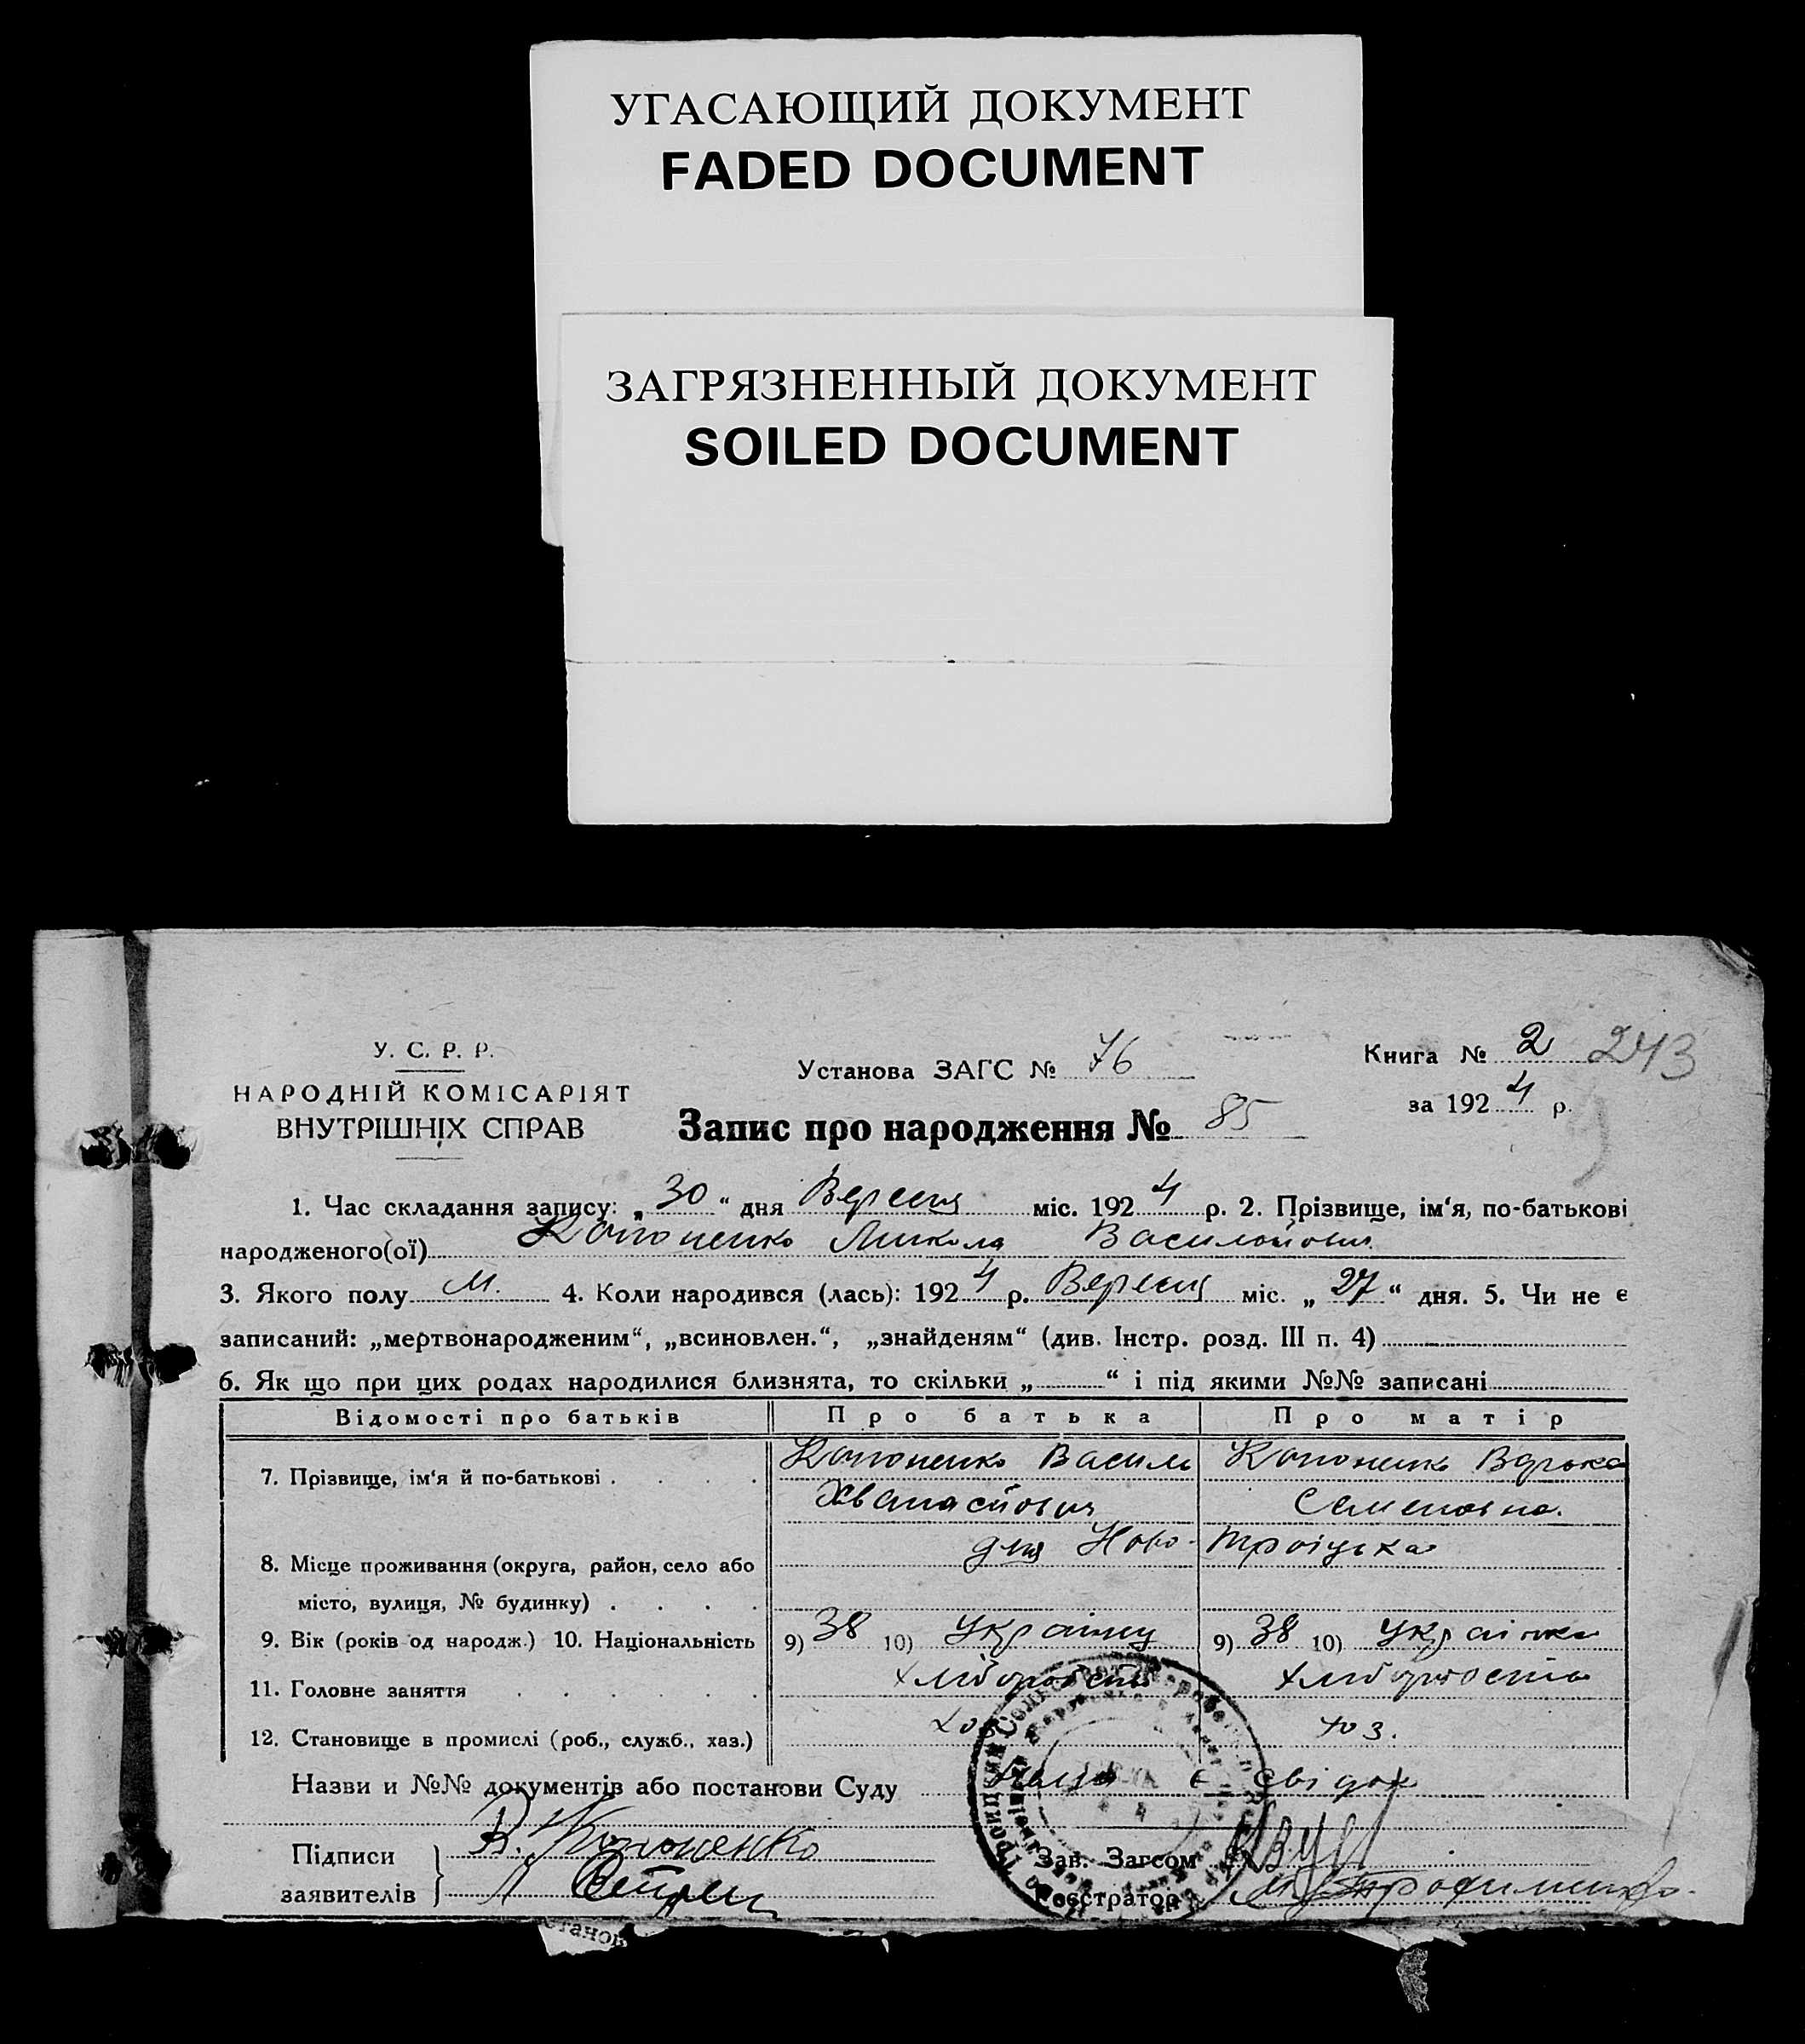 УГАСАЮЩИЙ ДОКУМЕНТ
FADED DOCUMENT
ЗАГРЯЗНЕННЫЙ ДОКУМЕНТ
SOILED DOCUMENT
У. С. Р. Р.
НАРОДНІЙ КОМІСАРІЯТ
ВНУТРІШНІХ СПРАВ
Установа ЗАГС № 76
Книга № 2 243
за 1924 р.
Запис про народження № 85
1. Час складання запису: „30“ дня Вересня міс. 1924 р. 2. Прізвище, ім‘я, по-батькові
народженого(ої) Кононенко Микола Васильович
3. Якого полу М. 4. Коли народився (лась): 1924 р. Вересня міс. „27“ дня. 5. Чи не є
записаний: „мертвонародженим“, „всиновлен.“, „знайденям“ (див. Інстр. розд. III п. 4)
6. Як що при цих родах народилися близнята, то скільки „ “ і під якими №№ записані
Відомості про батьків Про батька Про матір
7. Прізвище, ім‘я й по-батькові Кононенко Василь Кононенко Варька
Хванасович Семеновна.
8. Місце проживання (округа, район, село або Ново-Троіцька
місто, вулиця, № будинку)
9. Вік (років од народж.) 10. Національність 9) 38 10) Українец 9) 38 10) Українка
11. Головне заняття хліборобство хліборобство
12. Становище в промислі (роб., служб., хаз.) хоз. хоз.
Назви и №№ документів або постанови Суду є свідок
Підписи В. Кононенко Зав. Загсом
заявителів Реєстратор Трофименко